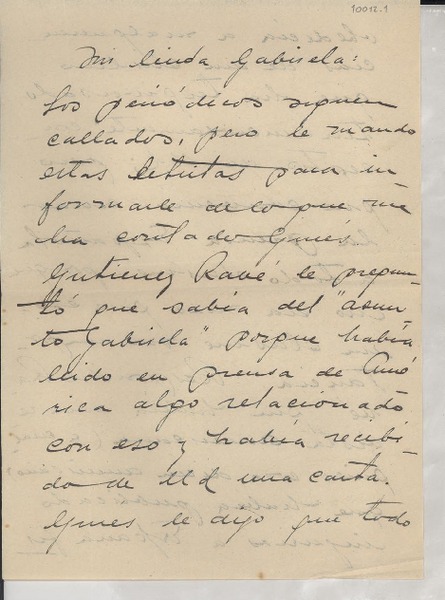 10012.1
Mi linda Gabriela:
Los periódicos siguen
callados, pero le mando
estas letritas para in
formarle de lo que me
ha contado Ginés.
Gutierrez Ravé le pregun
tó que sabía del "asun
to Gabriela" porque había
leido en prensa de Amé
rica algo relacionado
con eso y había recibi
do de Ud una carta.
Gines le dijo que todo